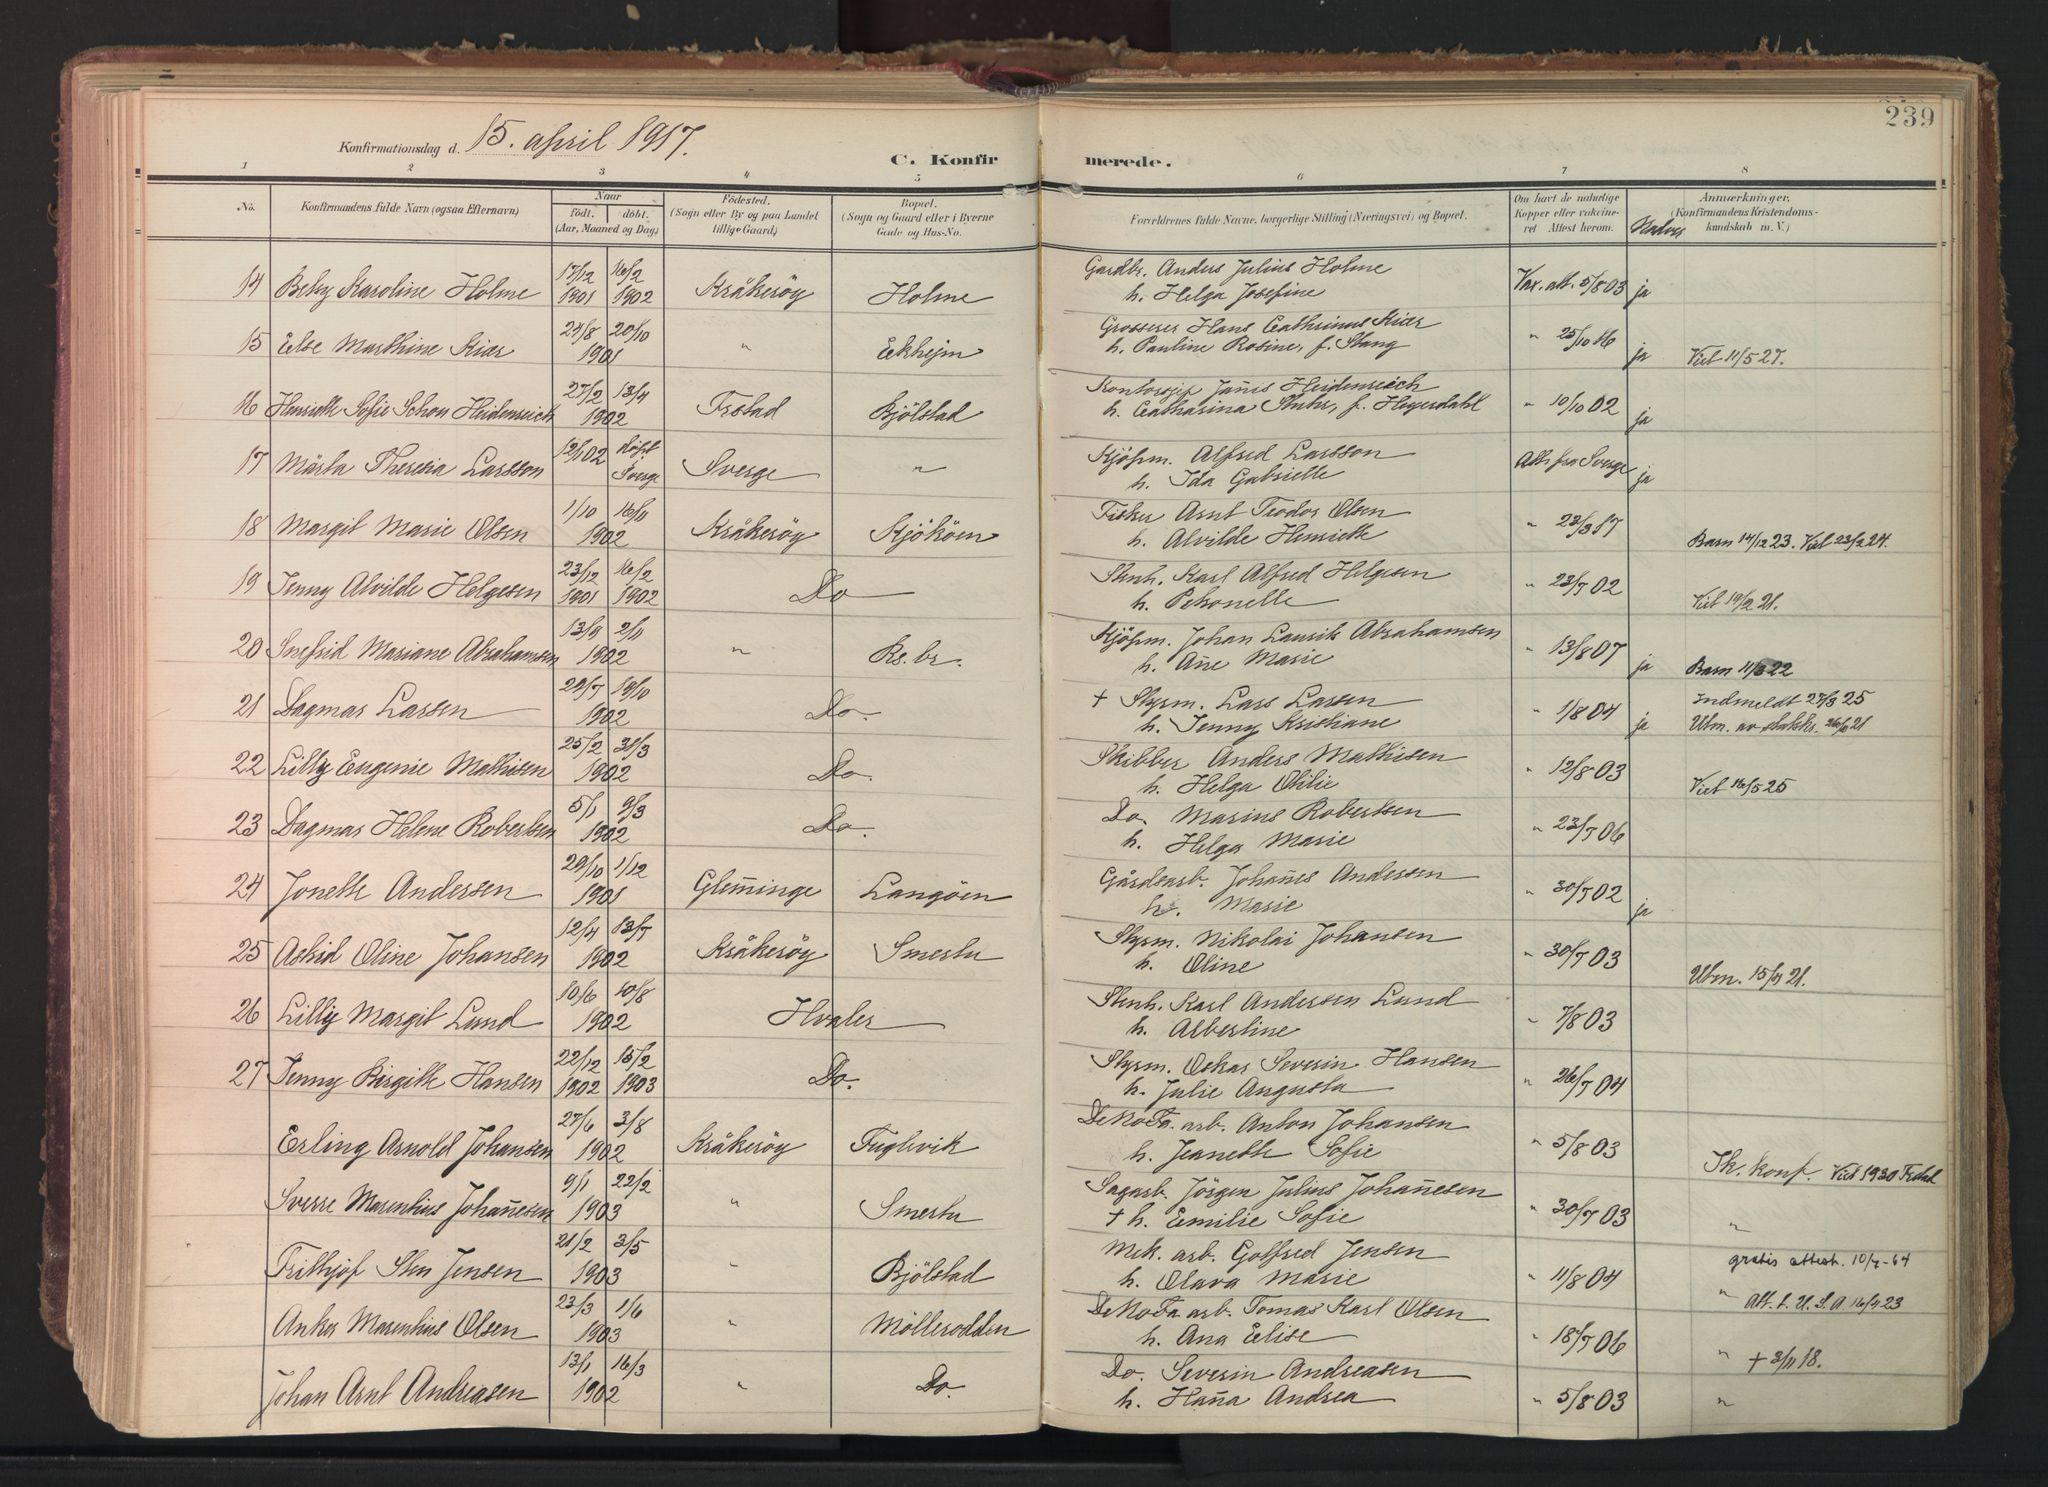 239
Konfirmationsdag d. 15. april 1917.
C. Konfir merede.
1 2 3 4 5 6 7 8
No. Konfirmandens fulde Navn (ogsaa Efternavn) Naar født. døbt. (Aar, Maaned og Dag) Fødested. (Sogn eller By og paa Landet tillige Gaard) Bopæl. (Sogn og Gaard eller i Byerne Gade og Hus-No. Forældrenes fulde Navne, borgerlige Stilling (Næringsvei) og Bopæl. Om havt de naturlige Kopper eller vakcineret. Attest herom. Anmærkninger. (Konfirmandens Kristendomskundskab m. V.)
14 Betsy Karoline Holme 17/12 1901 16/2 1902 Kråkeröy Holme Gardbr. Anders Julius Holme Vax. att. 5/8 03 ja
h. Helga Josefine
15 Else Marthine Kiær 24/8 20/10 1901 " Ekhejm Grosserer Hans Cathrinus Kiær " 25/10 16 ja Viet 11/5 27.
h. Pauline Rosine, f. Stang
16 Henriette Sofie Schou Heidenreich 27/2 13/4 1902 Bjölstad Jan̄is Heidenreich " 10/10 02 ja
h. Catharina Stuhr, f. Heyerdahl
17 Märta Theresia Larsson 12/1 02 döpt Sverge Sverge " Kjöpm. Alfred Larsson Att. fra Sverge ja
h. Ida Gabrielle
18 Margit Marie Olsen 1/10 16/11 1902 Kråkeröy Kjököen Fisker Arnt Teodor Olsen " 23/3 17 Barn 14/12 23. Viet 23/2 24.
h. Alvilde Henriette
19 Jenny Alvilde Helgesen 23/12 1901 16/2 1902 Do Stenh. Karl Alfred Helgesen " 23/7 02 Viet 19/2 21.
h. Petronelle
20 Snefrid Mariane Abrahamsen 13/9 2/11 1902 " Rs. br. Kjöpm. Johan Laurits Abrahamsen " 13/8 07 ja Barn 11/3 22
h. An̄e Marie
21 Dagmar Larsen 29/7 19/10 1902 Do. + Styrm. Lars Larsen " 1/8 04 ja Indmeldt 27/3 25
h. Jenny Kristiane Utm. av statsk. 21
22 Lilly Eugenie Mathisen 25/2 31/3 1902 Do. Skibber Anders Mathisen " 12/8 03 Viet 16/5 25
h. Helga Otilie
23 Dagmar Helene Robertsen 5/1 9/3 1902 Do. Do. Marius Robertsen " 23/7 06
h. Helga Marie
24 Jonette Andersen 29/10 1/12 1901 Glem̄inge Langöen Gårdsarb. Johan̄es Andersen " 30/7 02 ja
h. Marie
25 Astrid Oline Johansen 12/4 13/7 1902 Kråkeröy Smertu Styrm. Nikolai Johansen " 30/7 03 Utm. 15/11 21.
h. Oline
26 Lilly Margit Lund 10/6 10/8 1902 Hvaler Stenh. Karl Andersen Lund " 7/8 03
h. Albertine
27 Jenny Birgitte Hansen 22/12 1902 15/2 1903 Do. Styrm. Oskar Severin Hansen " 26/7 04
h. Julie Augusta
Erling Arnold Johansen 27/6 3/8 1902 Kråkeröy Fuglevik De No Fa. arb. Anton Johansen " 5/8 03 Ik. konf. Viet 1930
h. Jeanette Sofie
Sverre Marentius Johan̄esen 9/1 22/2 1903 " Smertu Sagarb. Jörgen Julius Johan̄esen " 30/7 03 "
+ h. Emilie Sofie
Frithjof Sten Jensen 21/2 3/5 1903 " Bjölstad Mek. arb. Golfred Jensen " 11/8 04 " gratis attest. 10/7-64
h. Olava Marie
Anker Marentius Olsen 23/3 1/6 1903 " Möllerodden De No Fa arb. Tomas Karl Olsen " 18/7 06 Att. t. U. S. A 16/4 23
h. Ana Elise " + 3/11 18.
Johan Arnt Andreasen 13/1 16/3 1902 " Do. Do. Severin Andreasen " 5/8 03 "
h. Han̄a Andrea